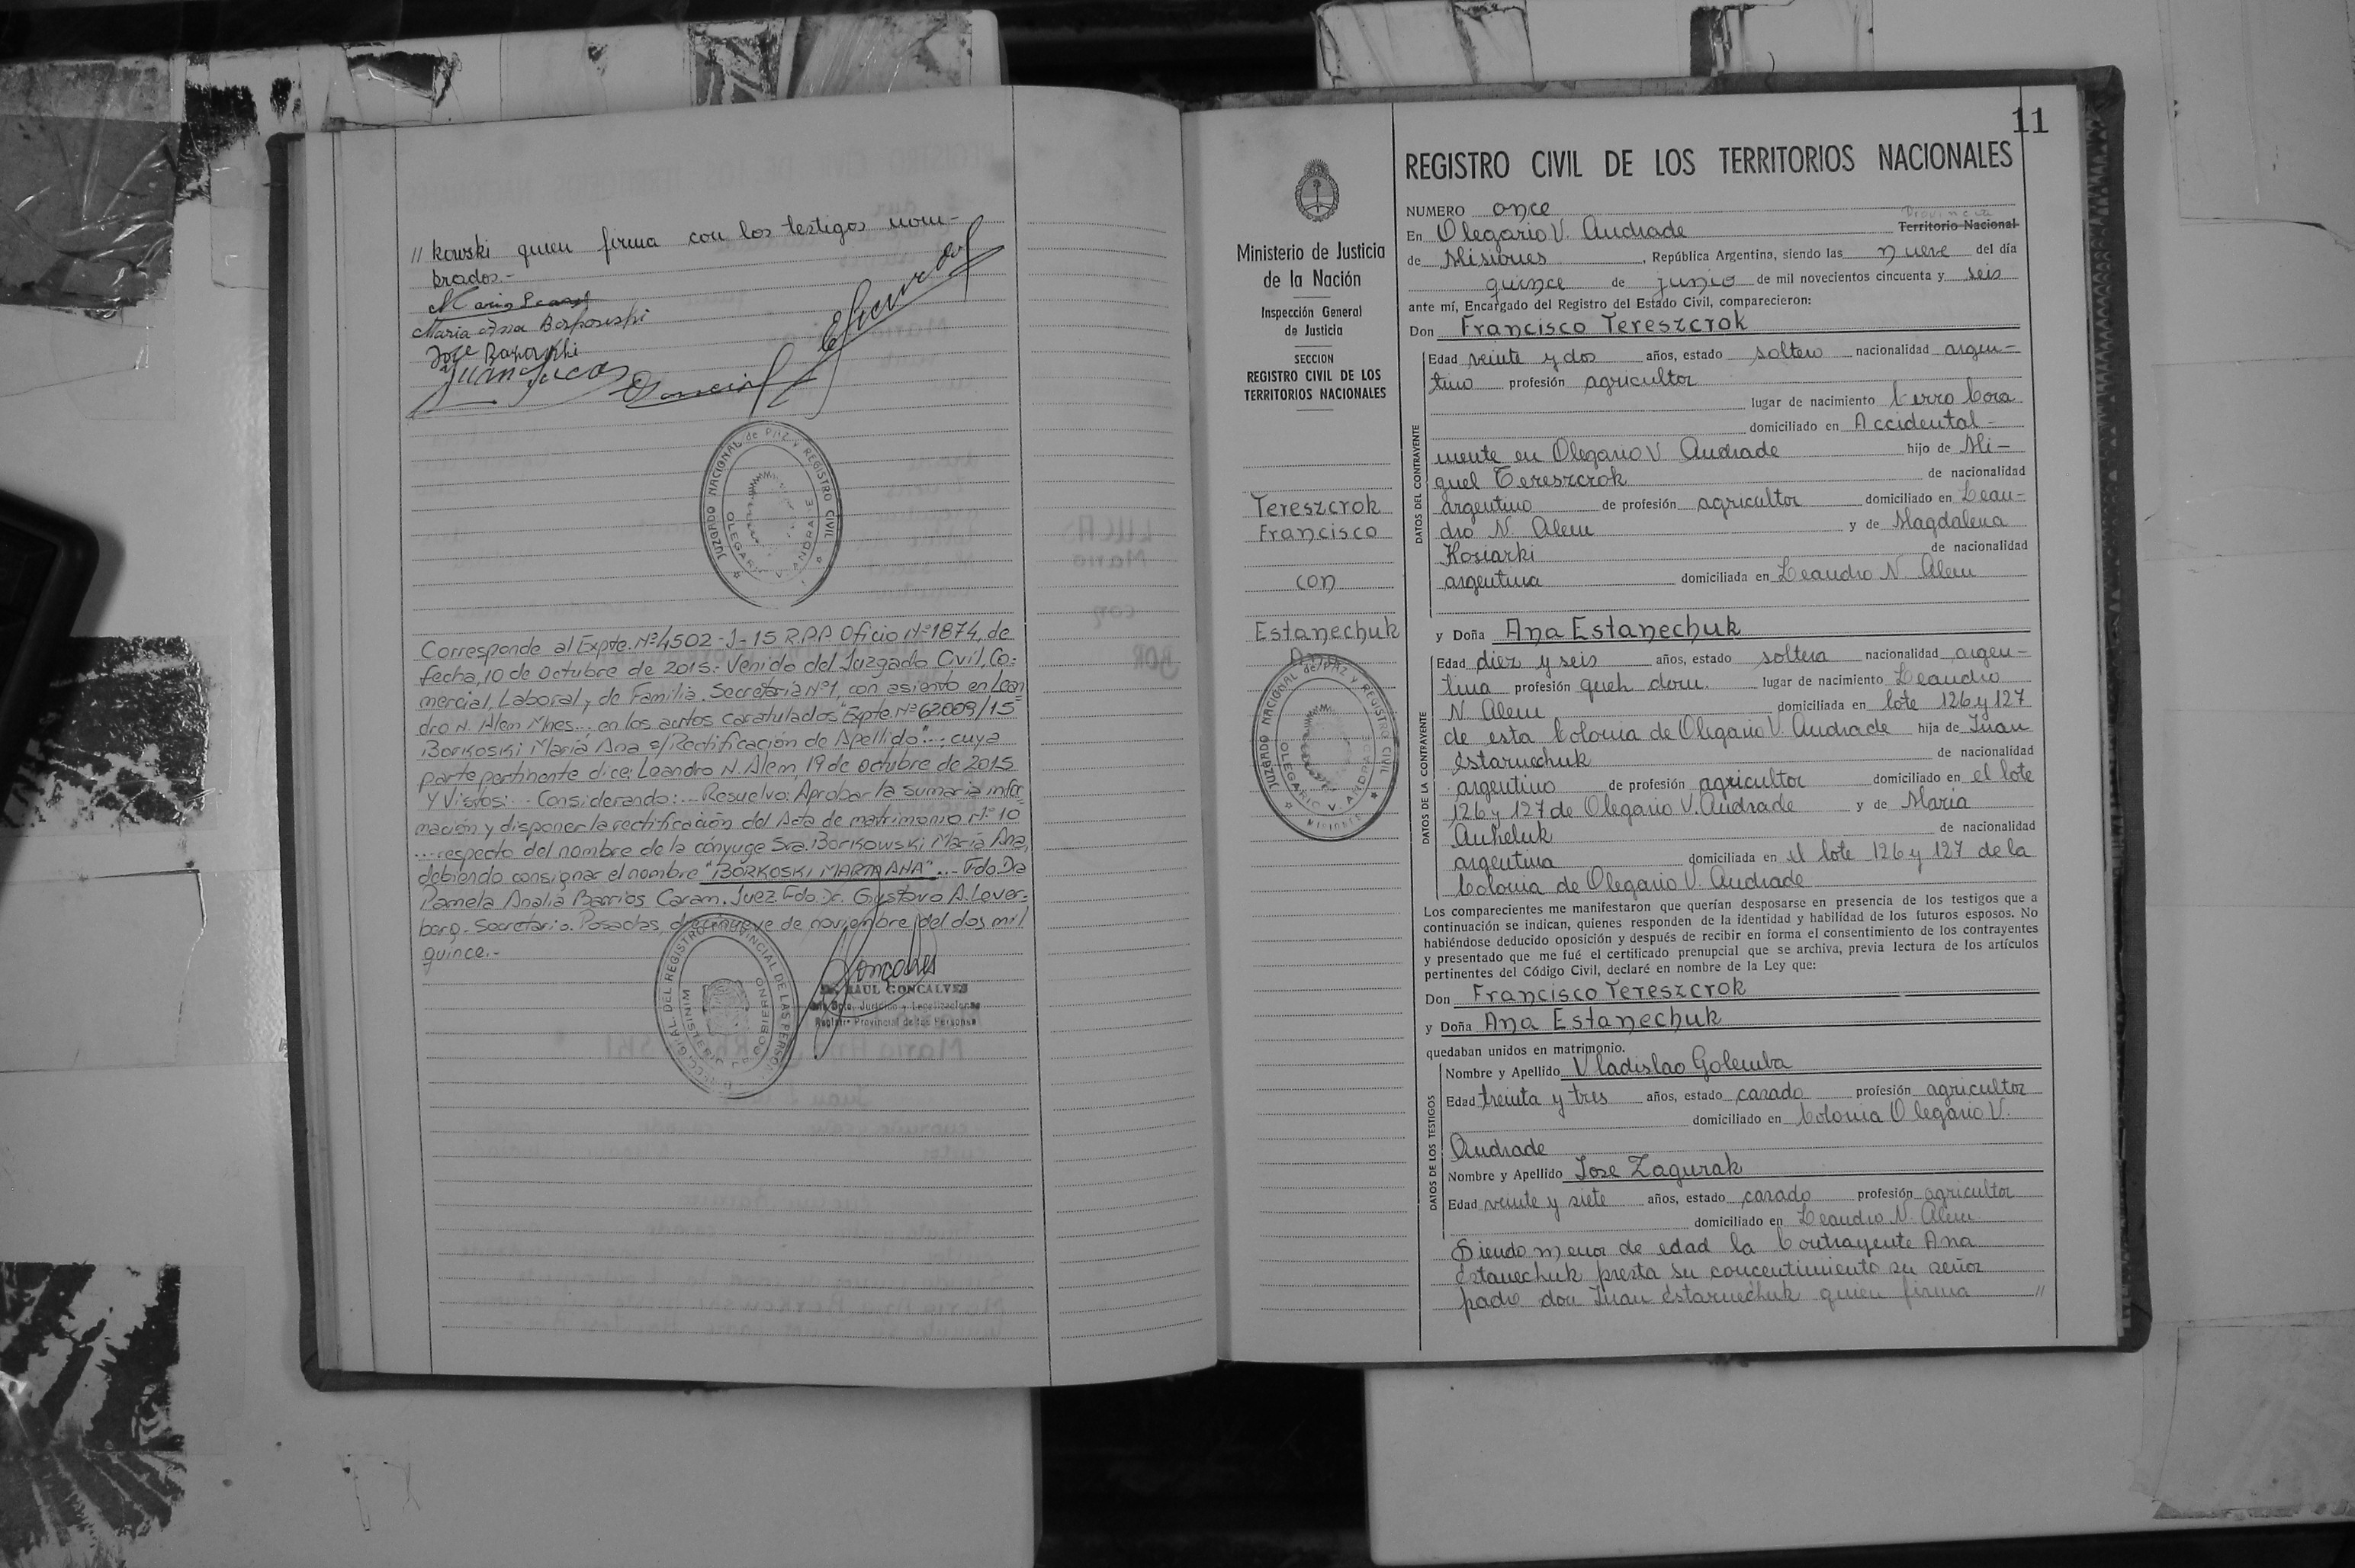 // kowski quien firma con los testigos nom-
brados.-
Maria Ana Borkowski
Jose Borkowski
Juan Lucas
JUZGADO NACIONAL de PAZ Y REGISTRO CIVIL
OLEGARIO V. ANDRADE
Corresponde al Expte. Nº 4502-J-15 R.P.P. Oficio Nº 1874, de
fecha, 10 de Octubre de 2015.- Venido del Juzgado Civil, Co-
mercial, Laboral, y de Familia. Secretaría Nº 1, con asiento en Lean
dro N. Alem Mnes..., en los autos caratulados "Expte. Nº 62009/15
Borkoski María Ana s/Rectificación de Apellido"..., cuya
parte pertinente dice: Leandro N. Alem, 19 de octubre de 2015
Y Vistos:... Considerando:... Resuelvo: Aprobar la sumaria infor
mación y disponer la rectificación del Acta de matrimonio Nº 10
...respecto del nombre de la cónyuge Sra. Borkowski María Ana,
debiendo consignar el nombre "BORKOSKI MARIA ANA"... Fdo. Dra
Pamela Analia Barrios Caram. Juez. Fdo. Dr. Gustavo A. Lever-
berg.- Secretario. Posadas, diecinueve de noviembre del dos mil
quince.-
DIRECC. GRAL. DEL REGISTRO PROVINCIAL DE LAS PERSONAS
MINISTERIO DE GOBIERNO
Goncalves
Dr. RAUL GONCALVES
Dpto. Jurídico y Legalizaciones
Registro Provincial de las Personas
11
Ministerio de Justicia
de la Nación
Inspección General
de Justicia
SECCION
REGISTRO CIVIL DE LOS
TERRITORIOS NACIONALES
Tereszcrok
Francisco
con
Estanechuk
Ana
JUZGADO NACIONAL de PAZ Y REGISTRO CIVIL
OLEGARIO V. ANDRADE
MISIONES
REGISTRO CIVIL DE LOS TERRITORIOS NACIONALES
NUMERO once
Provincia
En Olegario V. Andrade Territorio Nacional
de Misiones, República Argentina, siendo las nueve del día
quince de junio de mil novecientos cincuenta y seis
ante mí, Encargado del Registro del Estado Civil, comparecieron:
Don Francisco Tereszcrok
DATOS DEL CONTRAYENTE
Edad veinte y dos años, estado soltero nacionalidad argen-
tino profesión agricultor
lugar de nacimiento Cerro Cora
domiciliado en Accidental-
mente en Olegario V. Andrade hijo de Mi-
guel Tereszcrok de nacionalidad
argentino de profesión agricultor domiciliado en Lean-
dro N. Alem y de Magdalena
Kosiarki de nacionalidad
argentina domiciliada en Leandro N. Alem
y Doña Ana Estanechuk
DATOS DE LA CONTRAYENTE
Edad diez y seis años, estado soltera nacionalidad argen-
tina profesión queh dom. lugar de nacimiento Leandro
N. Alem domiciliada en lote 126 y 127
de esta Colonia de Olegario V. Andrade hija de Juan
Estanechuk de nacionalidad
argentino de profesión agricultor domiciliado en el lote
126 y 127 de Olegario V. Andrade y de Maria
Auheluk de nacionalidad
argentina domiciliada en el lote 126 y 127 de la
Colonia de Olegario V. Andrade
Los comparecientes me manifestaron que querían desposarse en presencia de los testigos que a
continuación se indican, quienes responden de la identidad y habilidad de los futuros esposos. No
habiéndose deducido oposición y después de recibir en forma el consentimiento de los contrayentes
y presentado que me fué el certificado prenupcial que se archiva, previa lectura de los artículos
pertinentes del Código Civil, declaré en nombre de la Ley que:
Don Francisco Tereszcrok
y Doña Ana Estanechuk
quedaban unidos en matrimonio.
DATOS DE LOS TESTIGOS
Nombre y Apellido Vladislao Golemba
Edad treinta y tres años, estado casado profesión agricultor
domiciliado en Colonia Olegario V.
Andrade
Nombre y Apellido Jose Zagurak
Edad veinte y siete años, estado casado profesión agricultor
domiciliado en Leandro N. Alem
Siendo menor de edad la Contrayente Ana
Estanechuk presta su concentimiento su señor
padre don Juan Estanechuk quien firma //